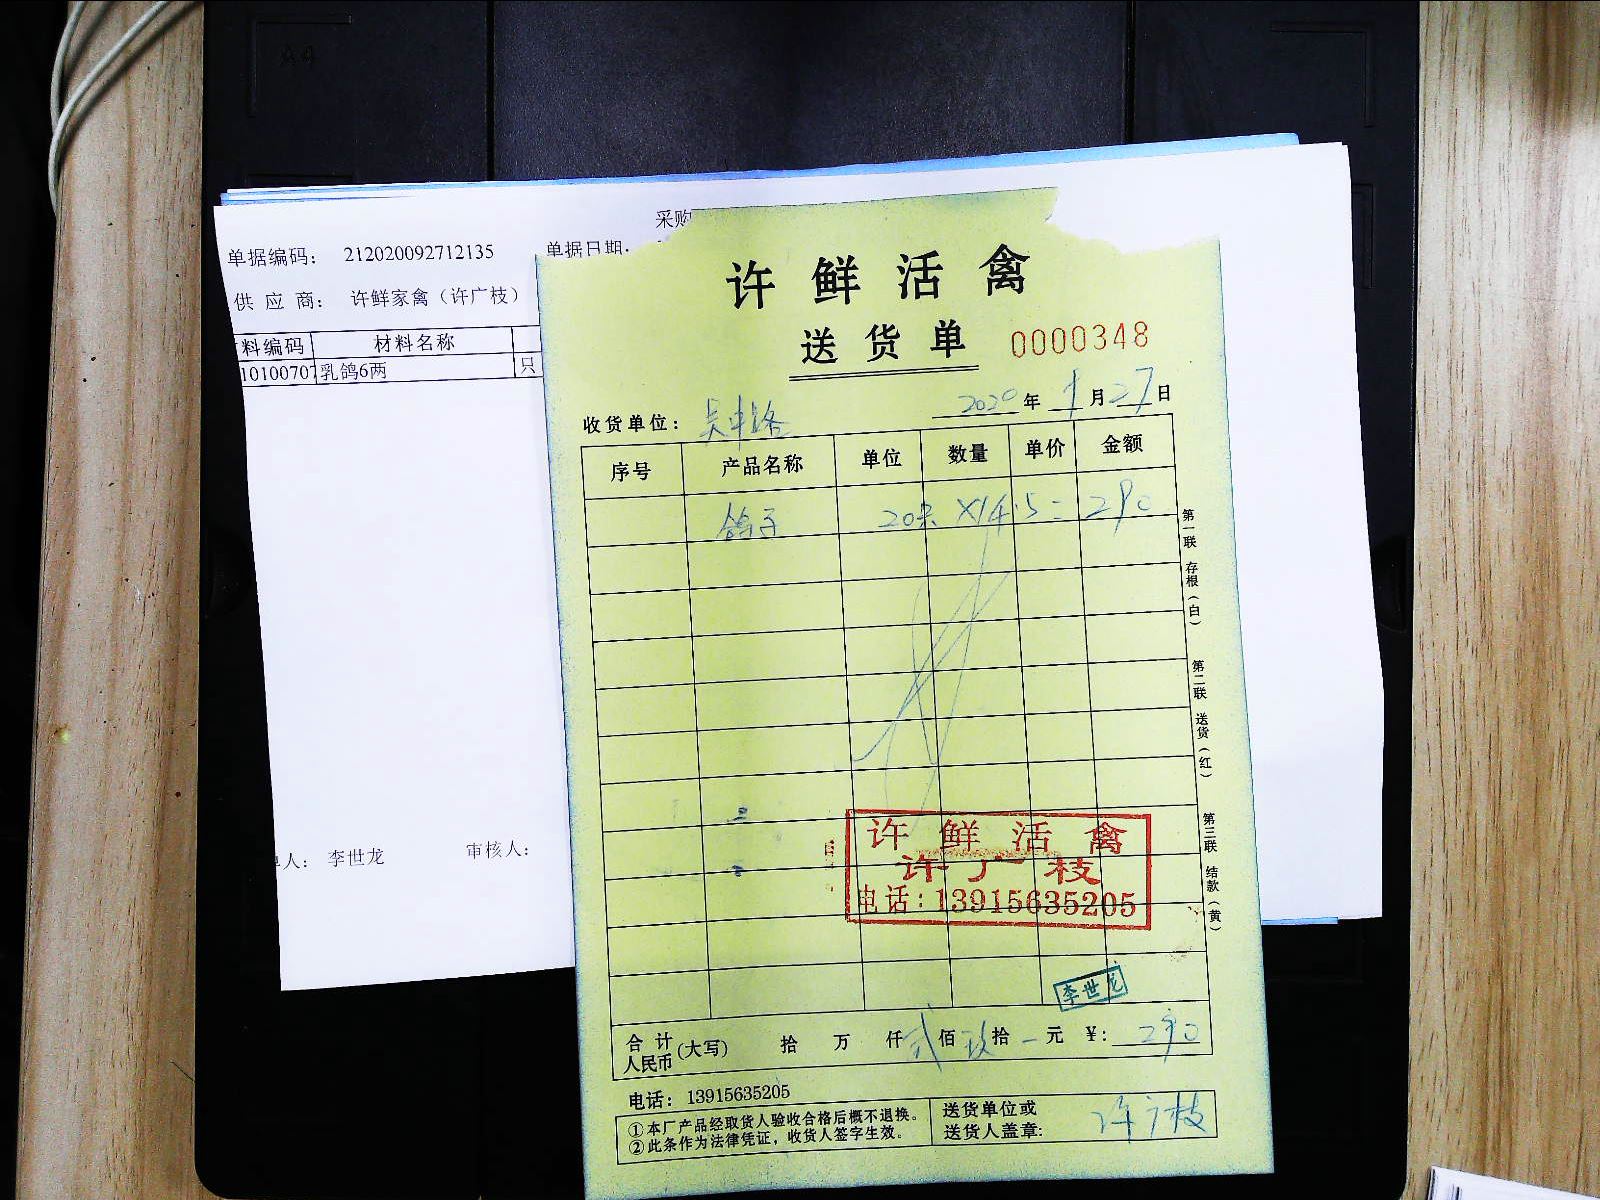 采购
单据编码： 212020092712135 单据日期：
供 应 商： 许鲜家禽（许广枝）
料编码 材料名称
10100707 乳鸽6两 只
单人： 李世龙 审核人：
许鲜活禽
送货单 0000348
2020 年 9 月 27 日
收货单位： 吴中路
序号 产品名称 单位 数量 单价 金额
鸽子 20只 ×14.5= 290
第一联 存根（白）
第二联 送货（红）
第三联 结款（黄）
许鲜活禽
许广枝
电话：13915635205
李世龙
合计人民币(大写) 拾 万 仟 贰 佰 玖 拾 元 ¥: 290
电话： 13915635205
①本厂产品经取货人验收合格后概不退换。
②此条作为法律凭证，收货人签字生效。
送货单位或
送货人盖章: 许广枝